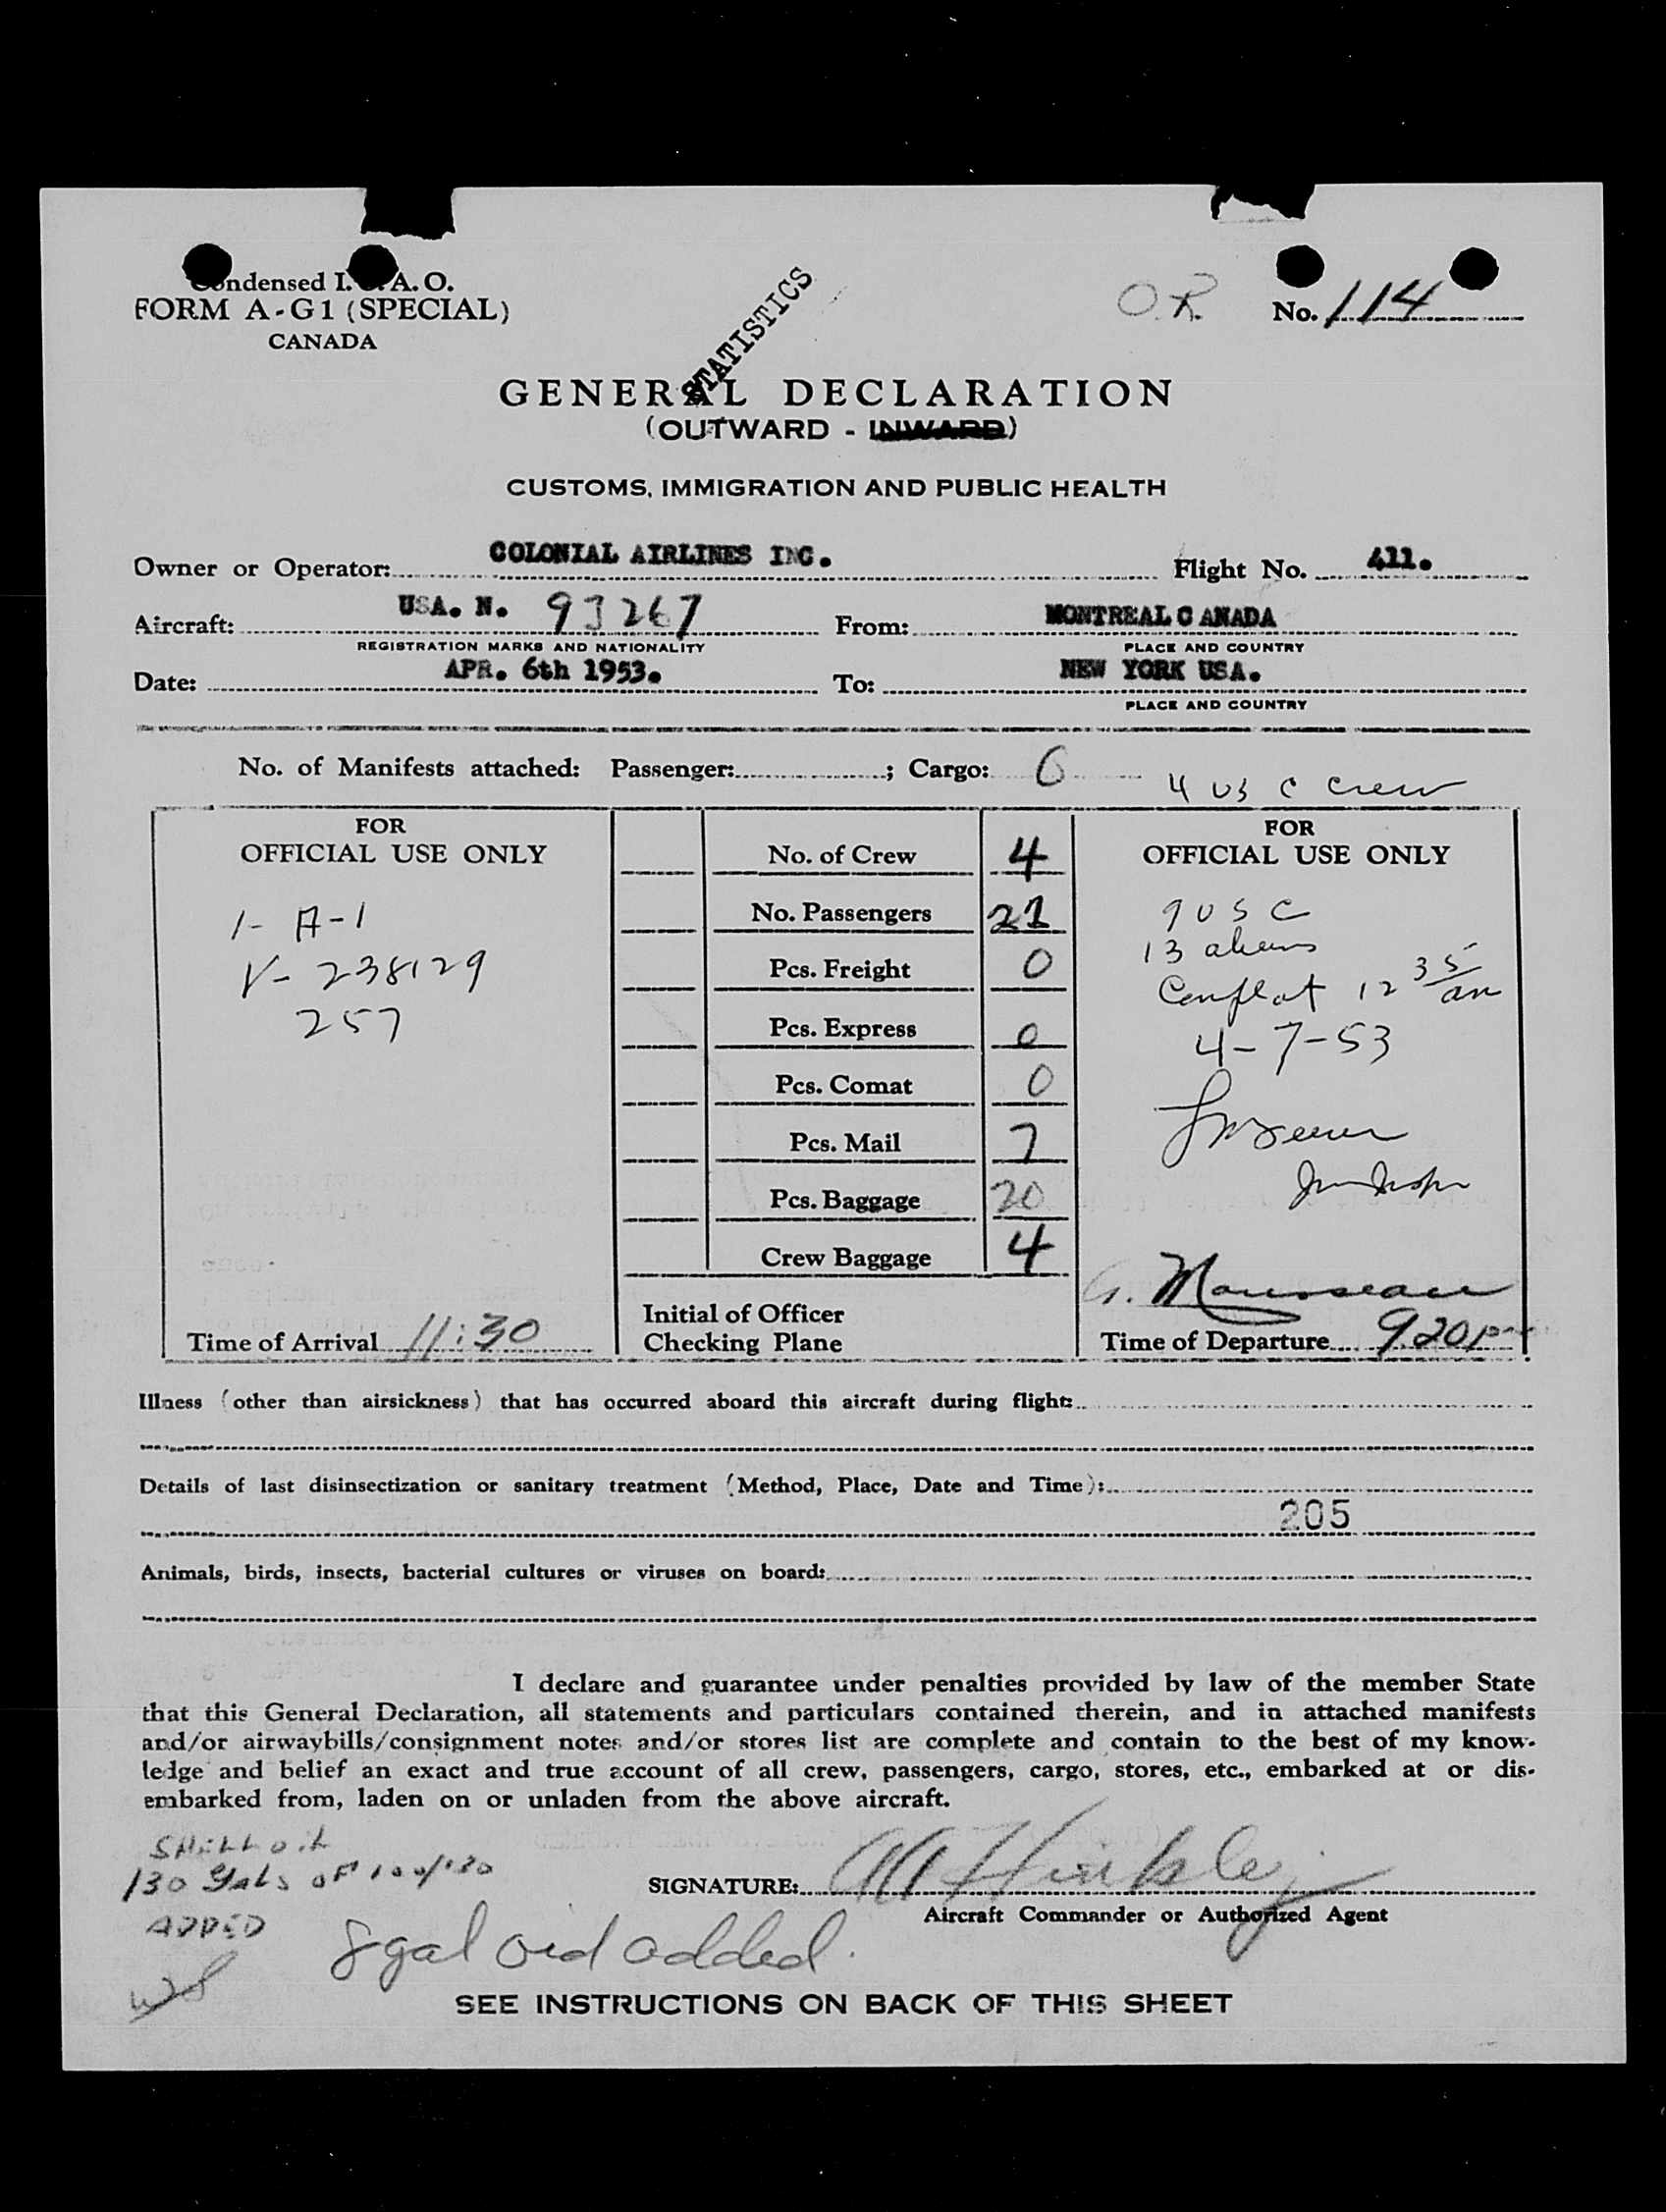 Condensed I.C.A.O.
FORM A-G1 (SPECIAL)
CANADA
STATISTICS
O.R.
No. 114
GENERAL DECLARATION
(OUTWARD - INWARD)
CUSTOMS, IMMIGRATION AND PUBLIC HEALTH
Owner or Operator: COLONIAL AIRLINES INC. Flight No. 411.
Aircraft: USA. N. 93267 From: MONTREAL C ANADA
REGISTRATION MARKS AND NATIONALITY PLACE AND COUNTRY
Date: APR. 6th 1953. To: NEW YORK USA.
PLACE AND COUNTRY
No. of Manifests attached: Passenger: ; Cargo: 6
4 US C Crew
FOR
OFFICIAL USE ONLY
1- A-1
V- 238129
257
Time of Arrival 11:30
No. of Crew 4
No. Passengers 21
Pcs. Freight 0
Pcs. Express 0
Pcs. Comat 0
Pcs. Mail 7
Pcs. Baggage 20
Crew Baggage 4
Initial of Officer
Checking Plane
FOR
OFFICIAL USE ONLY
9 USC
13 aliens
12 35 am
4-7-53
G. Mousseau
Time of Departure 9.20 pm
Illness (other than airsickness) that has occurred aboard this aircraft during flight:
Details of last disinsectization or sanitary treatment (Method, Place, Date and Time):
205
Animals, birds, insects, bacterial cultures or viruses on board:
I declare and guarantee under penalties provided by law of the member State
that this General Declaration, all statements and particulars contained therein, and in attached manifests
and/or airwaybills/consignment notes and/or stores list are complete and contain to the best of my know-
ledge and belief an exact and true account of all crew, passengers, cargo, stores, etc., embarked at or dis-
embarked from, laden on or unladen from the above aircraft.
SHELL oil
130 gals of 100/130
ADDED
SIGNATURE: Hinkley
Aircraft Commander or Authorized Agent
8 gal oil added.
SEE INSTRUCTIONS ON BACK OF THIS SHEET